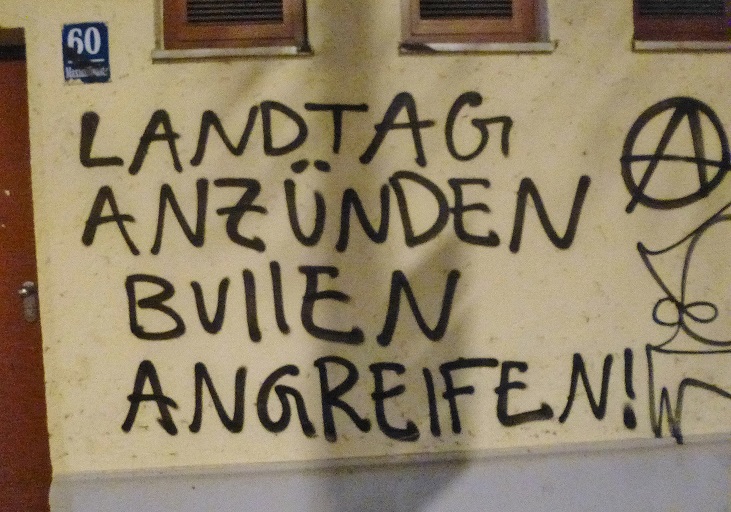 60
LANDTAG
ANZÜNDEN
BULLEN
ANGREIFEN!